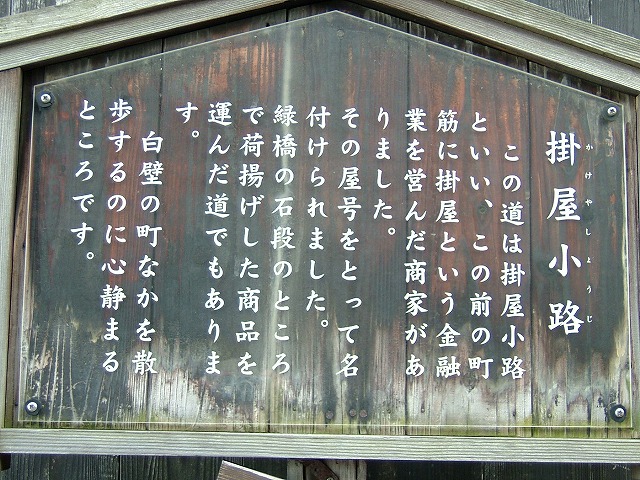 掛屋小路
かけやしょうじ
この道は掛屋小路
といい、この前の町
筋に掛屋という金融
業を営んだ商家があ
りました。
その屋号をとって名
付けられました。
緑橋の石段のところ
で荷揚げした商品を
運んだ道でもありま
す。
白壁の町なかを散
歩するのに心静まる
ところです。